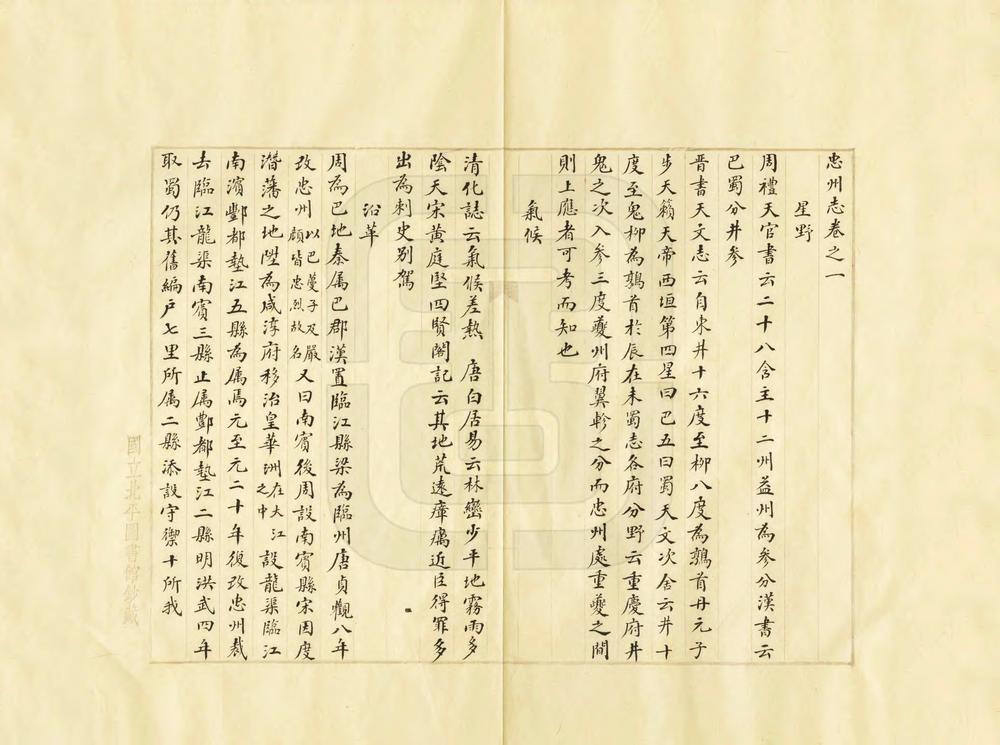 忠州志卷之一
星野
周禮天官書云二十八舍主十二州益州為參分漢書云
巴蜀分井參
晋書天文志云自東井十六度至柳八度為鶉首丹元子
步天籟天帝西垣第四星曰巴五曰蜀天文次舍云井十
度至鬼柳為鶉首於辰在未蜀志各府分野云重慶府井
鬼之次入參三度夔州府翼軫之分而忠州處重夔之間
則上應者可考而知也
氣候
清化誌云氣候差熱 唐白居易云林巒少平地霧雨多
陰天宋黄庭堅四賢閣記云其地荒遠瘴癘近臣得罪多
出為刺史别駕
沿革
周為巴地秦屬巴郡漢置臨江縣梁為臨州唐貞觀八年
改忠州以巴蔓子及嚴顔皆忠烈故名又曰南賓後周設南賓縣宋因度
潛藩之地陞為咸淳府移治皇華洲在大江之中設龍渠臨江
南濱酆都墊江五縣為屬焉元至元二十年復改忠州裁
去臨江龍渠南賓三縣止屬酆都墊江二縣明洪武四年
取蜀仍其舊編戶七里所屬二縣添設守禦十所我
國立北平圖書館鈔藏